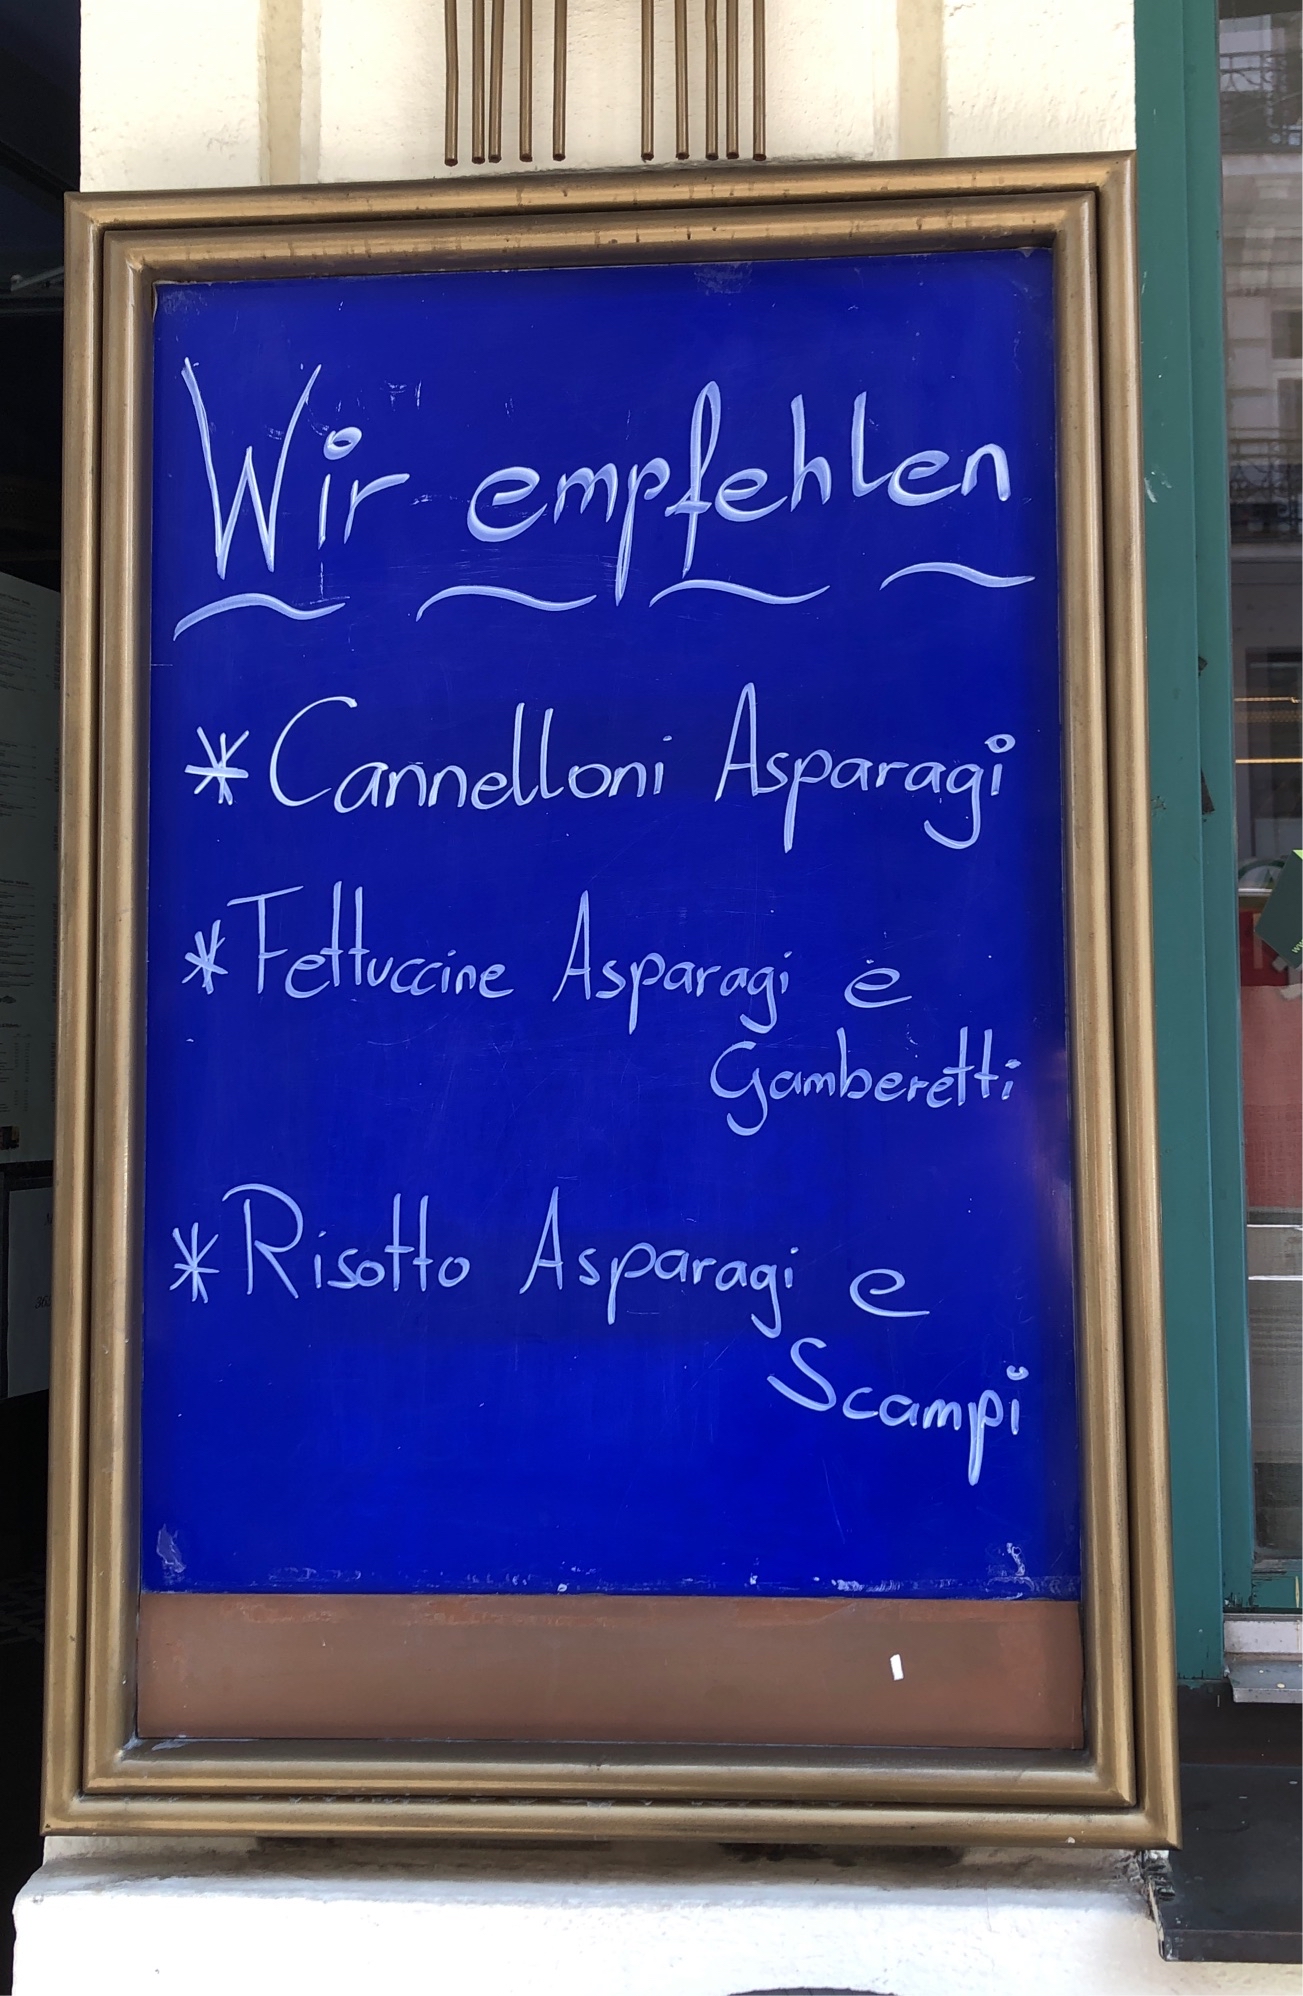 Wir empfehlen
* Cannelloni Asparagi
* Fettuccine Asparagi e
Gamberetti
* Risotto Asparagi e
Scampi